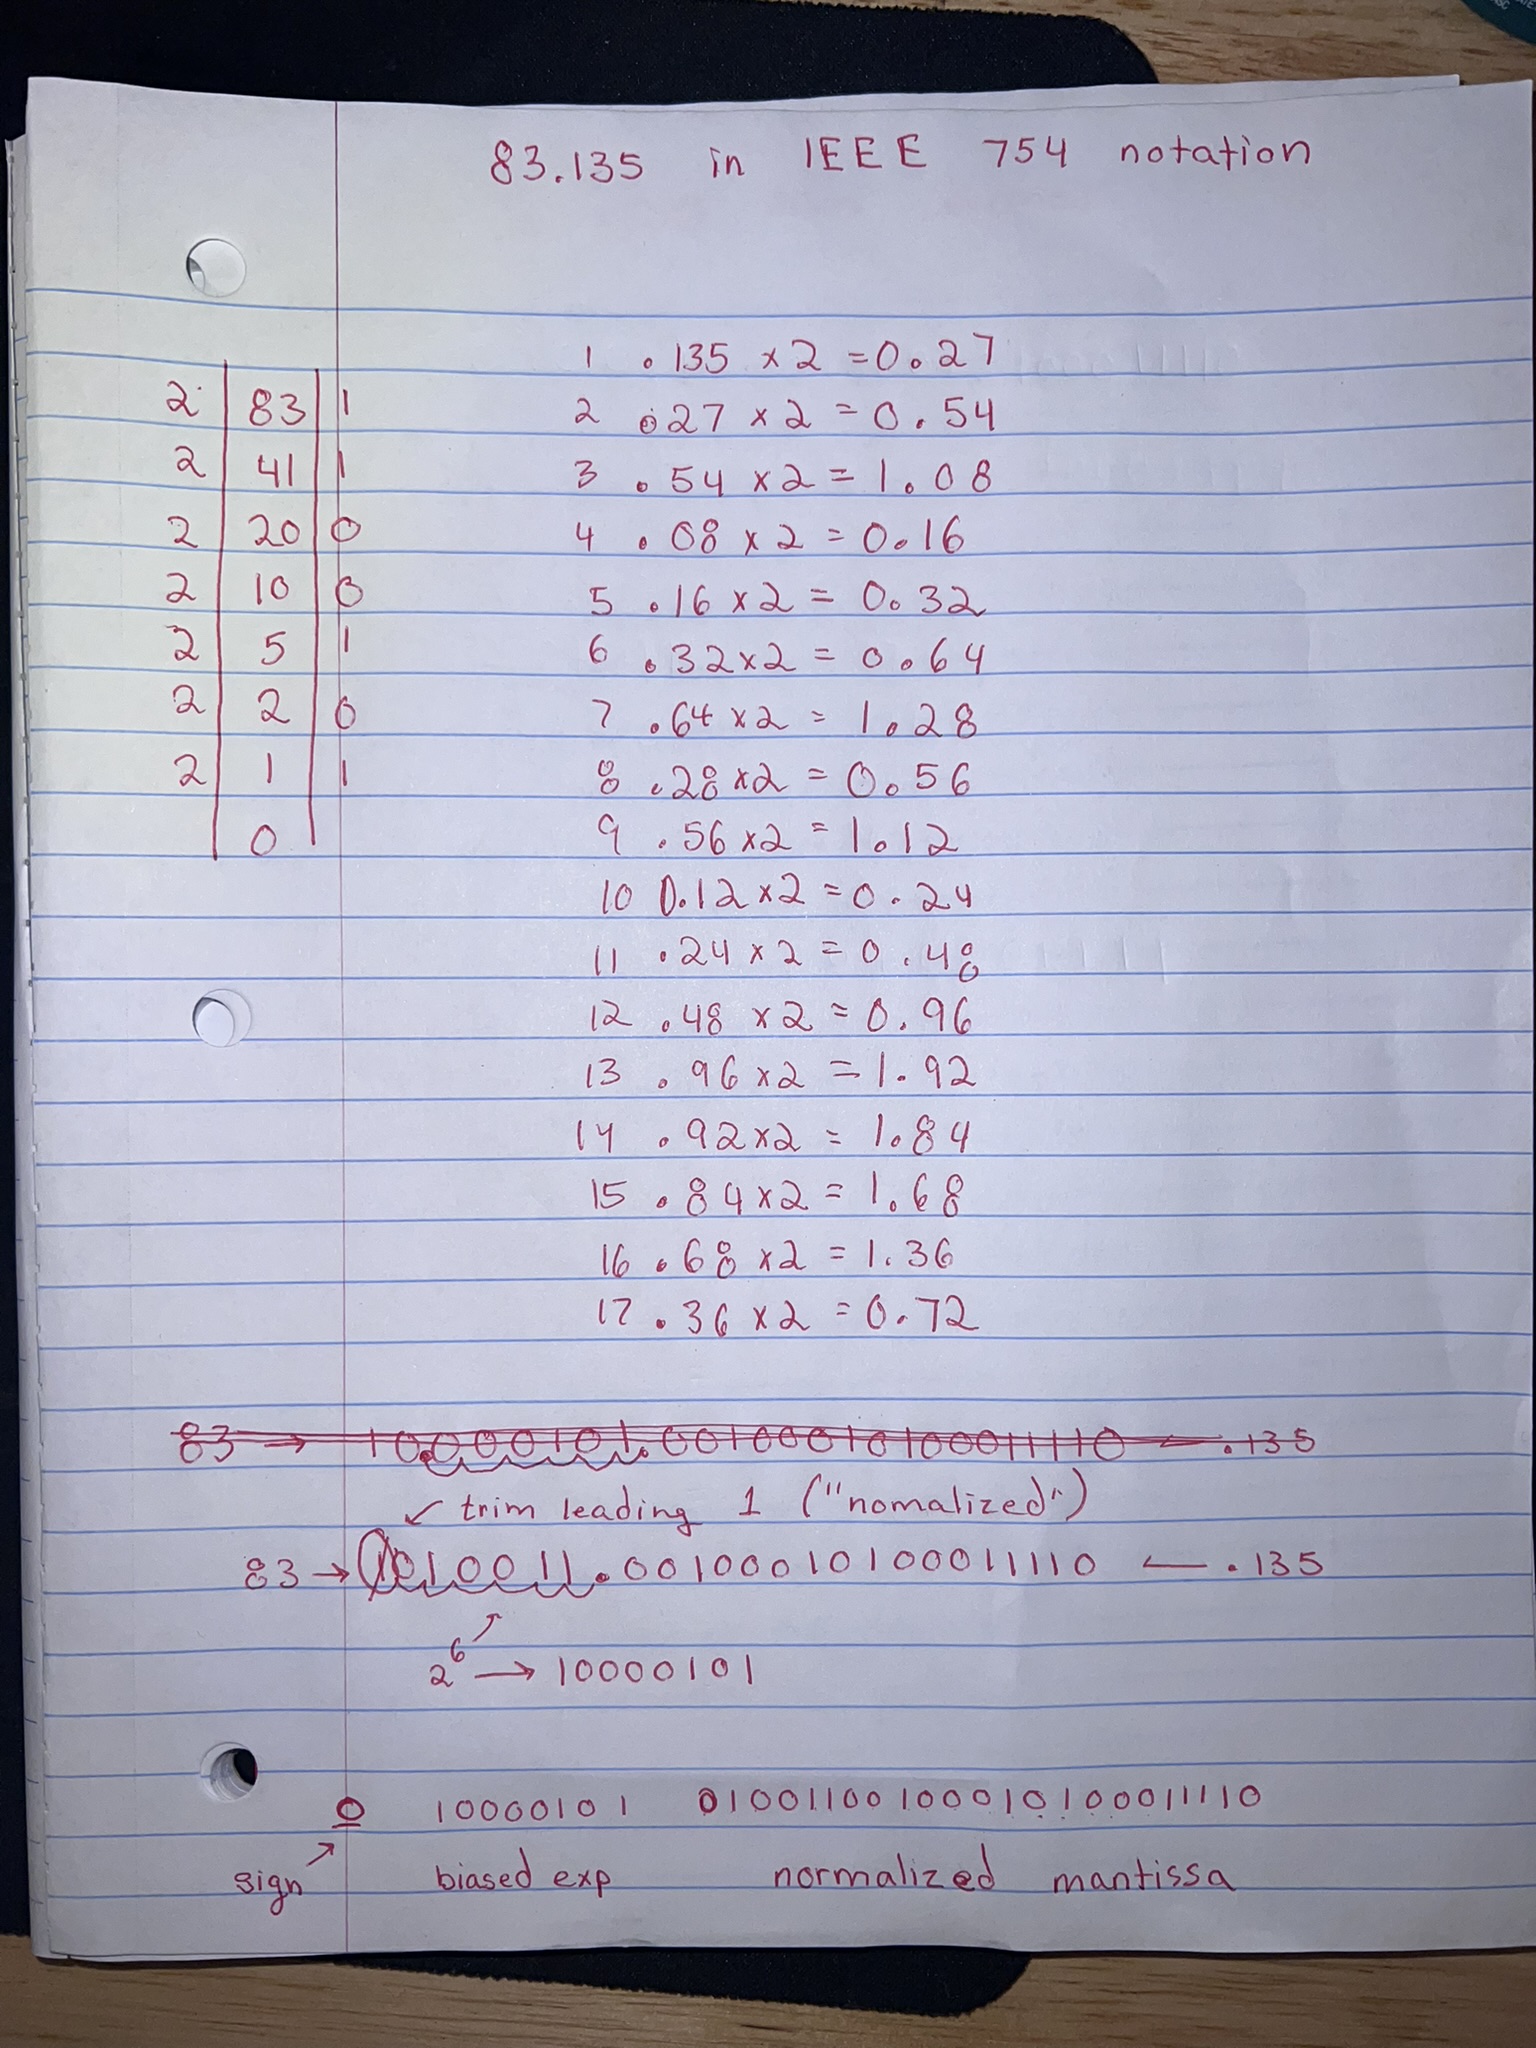 83.135 in IEEE 754 notation
2 83 1
2 41 1
2 20 0
2 10 0
2 5 1
2 2 0
2 1 1
0
1 .135 x 2 = 0.27
2 .27 x 2 = 0.54
3 .54 x 2 = 1.08
4 .08 x 2 = 0.16
5 .16 x 2 = 0.32
6 .32 x 2 = 0.64
7 .64 x 2 = 1.28
8 .28 x 2 = 0.56
9 .56 x 2 = 1.12
10 0.12 x 2 = 0.24
11 .24 x 2 = 0.48
12 .48 x 2 = 0.96
13 .96 x 2 = 1.92
14 .92 x 2 = 1.84
15 .84 x 2 = 1.68
16 .68 x 2 = 1.36
17 .36 x 2 = 0.72
83 → 10.000101.00100010100011110 ← .135
↙ trim leading 1 ("nomalized")
83 → 1010011.00100010100011110 ← .135
2^6 → 10000101
0 10000101 01001100100010100011110
sign biased exp normalized mantissa